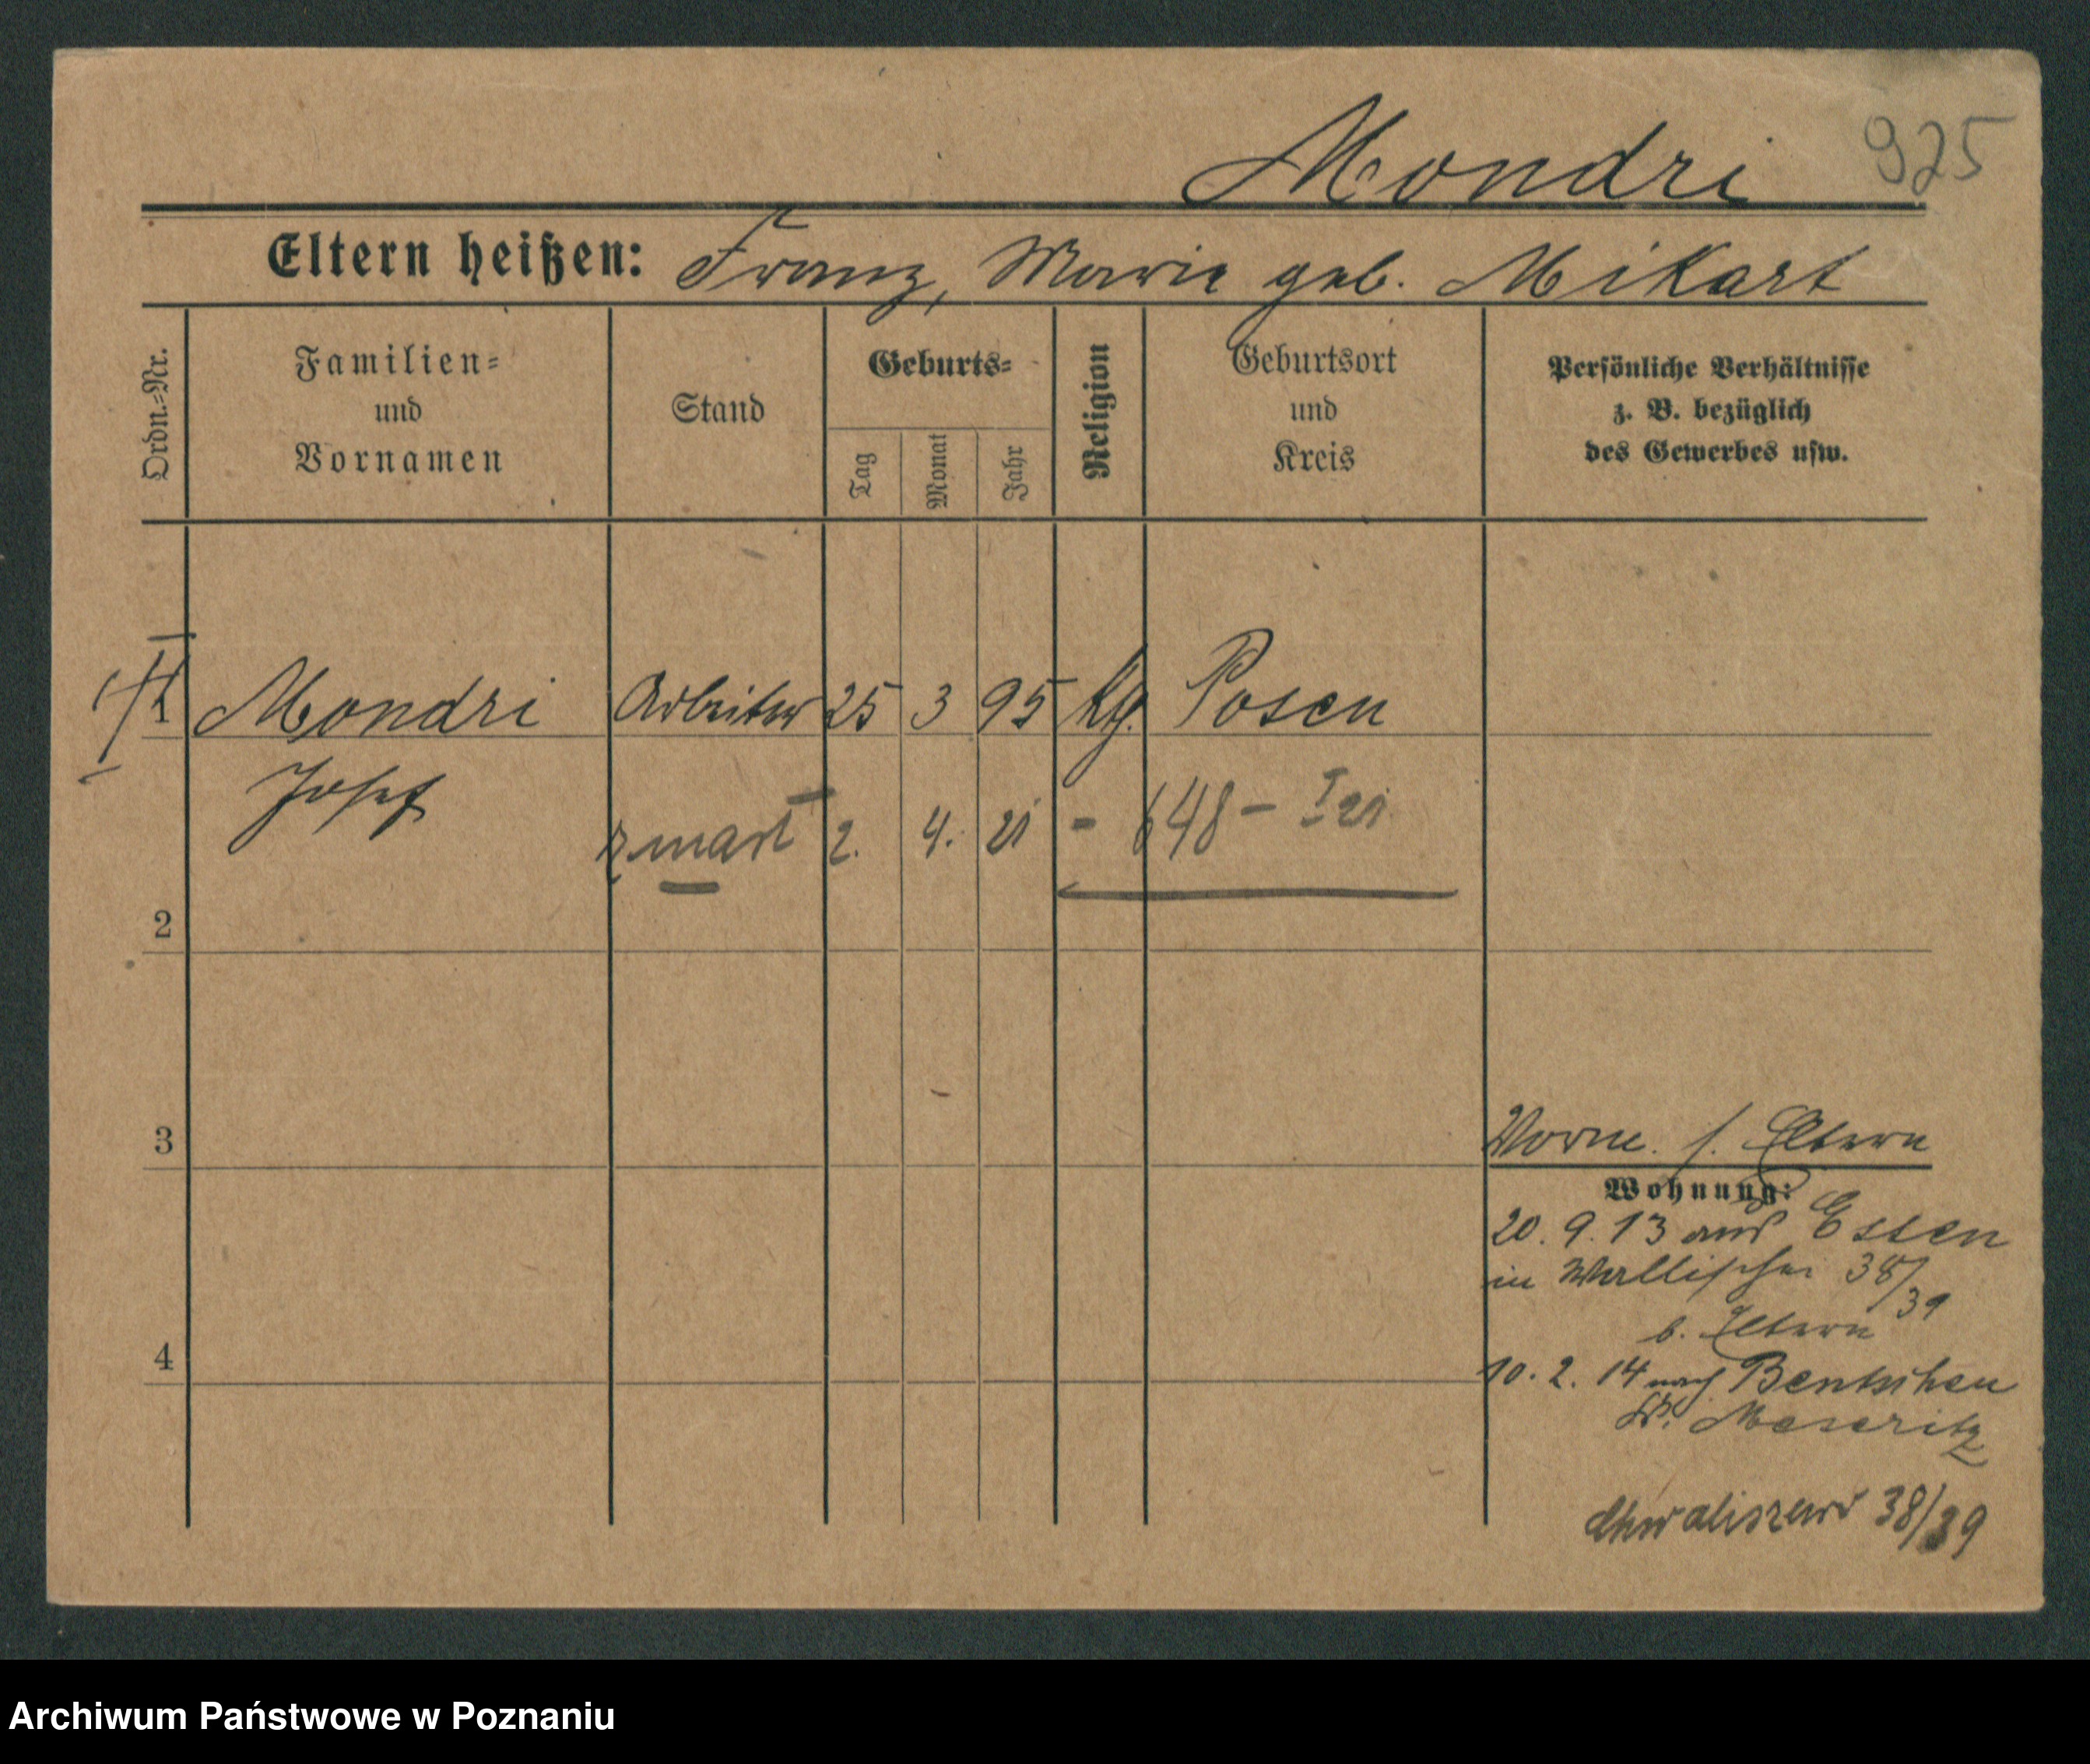 925
Mondri
Eltern heißen: Franz, Marie geb. Mikart
Ordn.-Nr.
Familien-
und
Vornamen
Stand
Geburts-
Tag
Monat
Jahr
Religion
Geburtsort
und
Kreis
Persönliche Verhältnisse
z. B. bezüglich
des Gewerbes usw.
1 Mondri Arbeiter 25 3 95 Posen
Josef
zmarł 2. 4. 21 - 648 - I 21
2
3
Vorne. s. Eltern
Wohnung:
20. 9. 13 aus Essen
in Wallischei 38/39
b. Eltern
4
10. 2. 14 nach Bentschen
Kr. Meseritz
Chwaliszewo 38/39
Archiwum Państwowe w Poznaniu